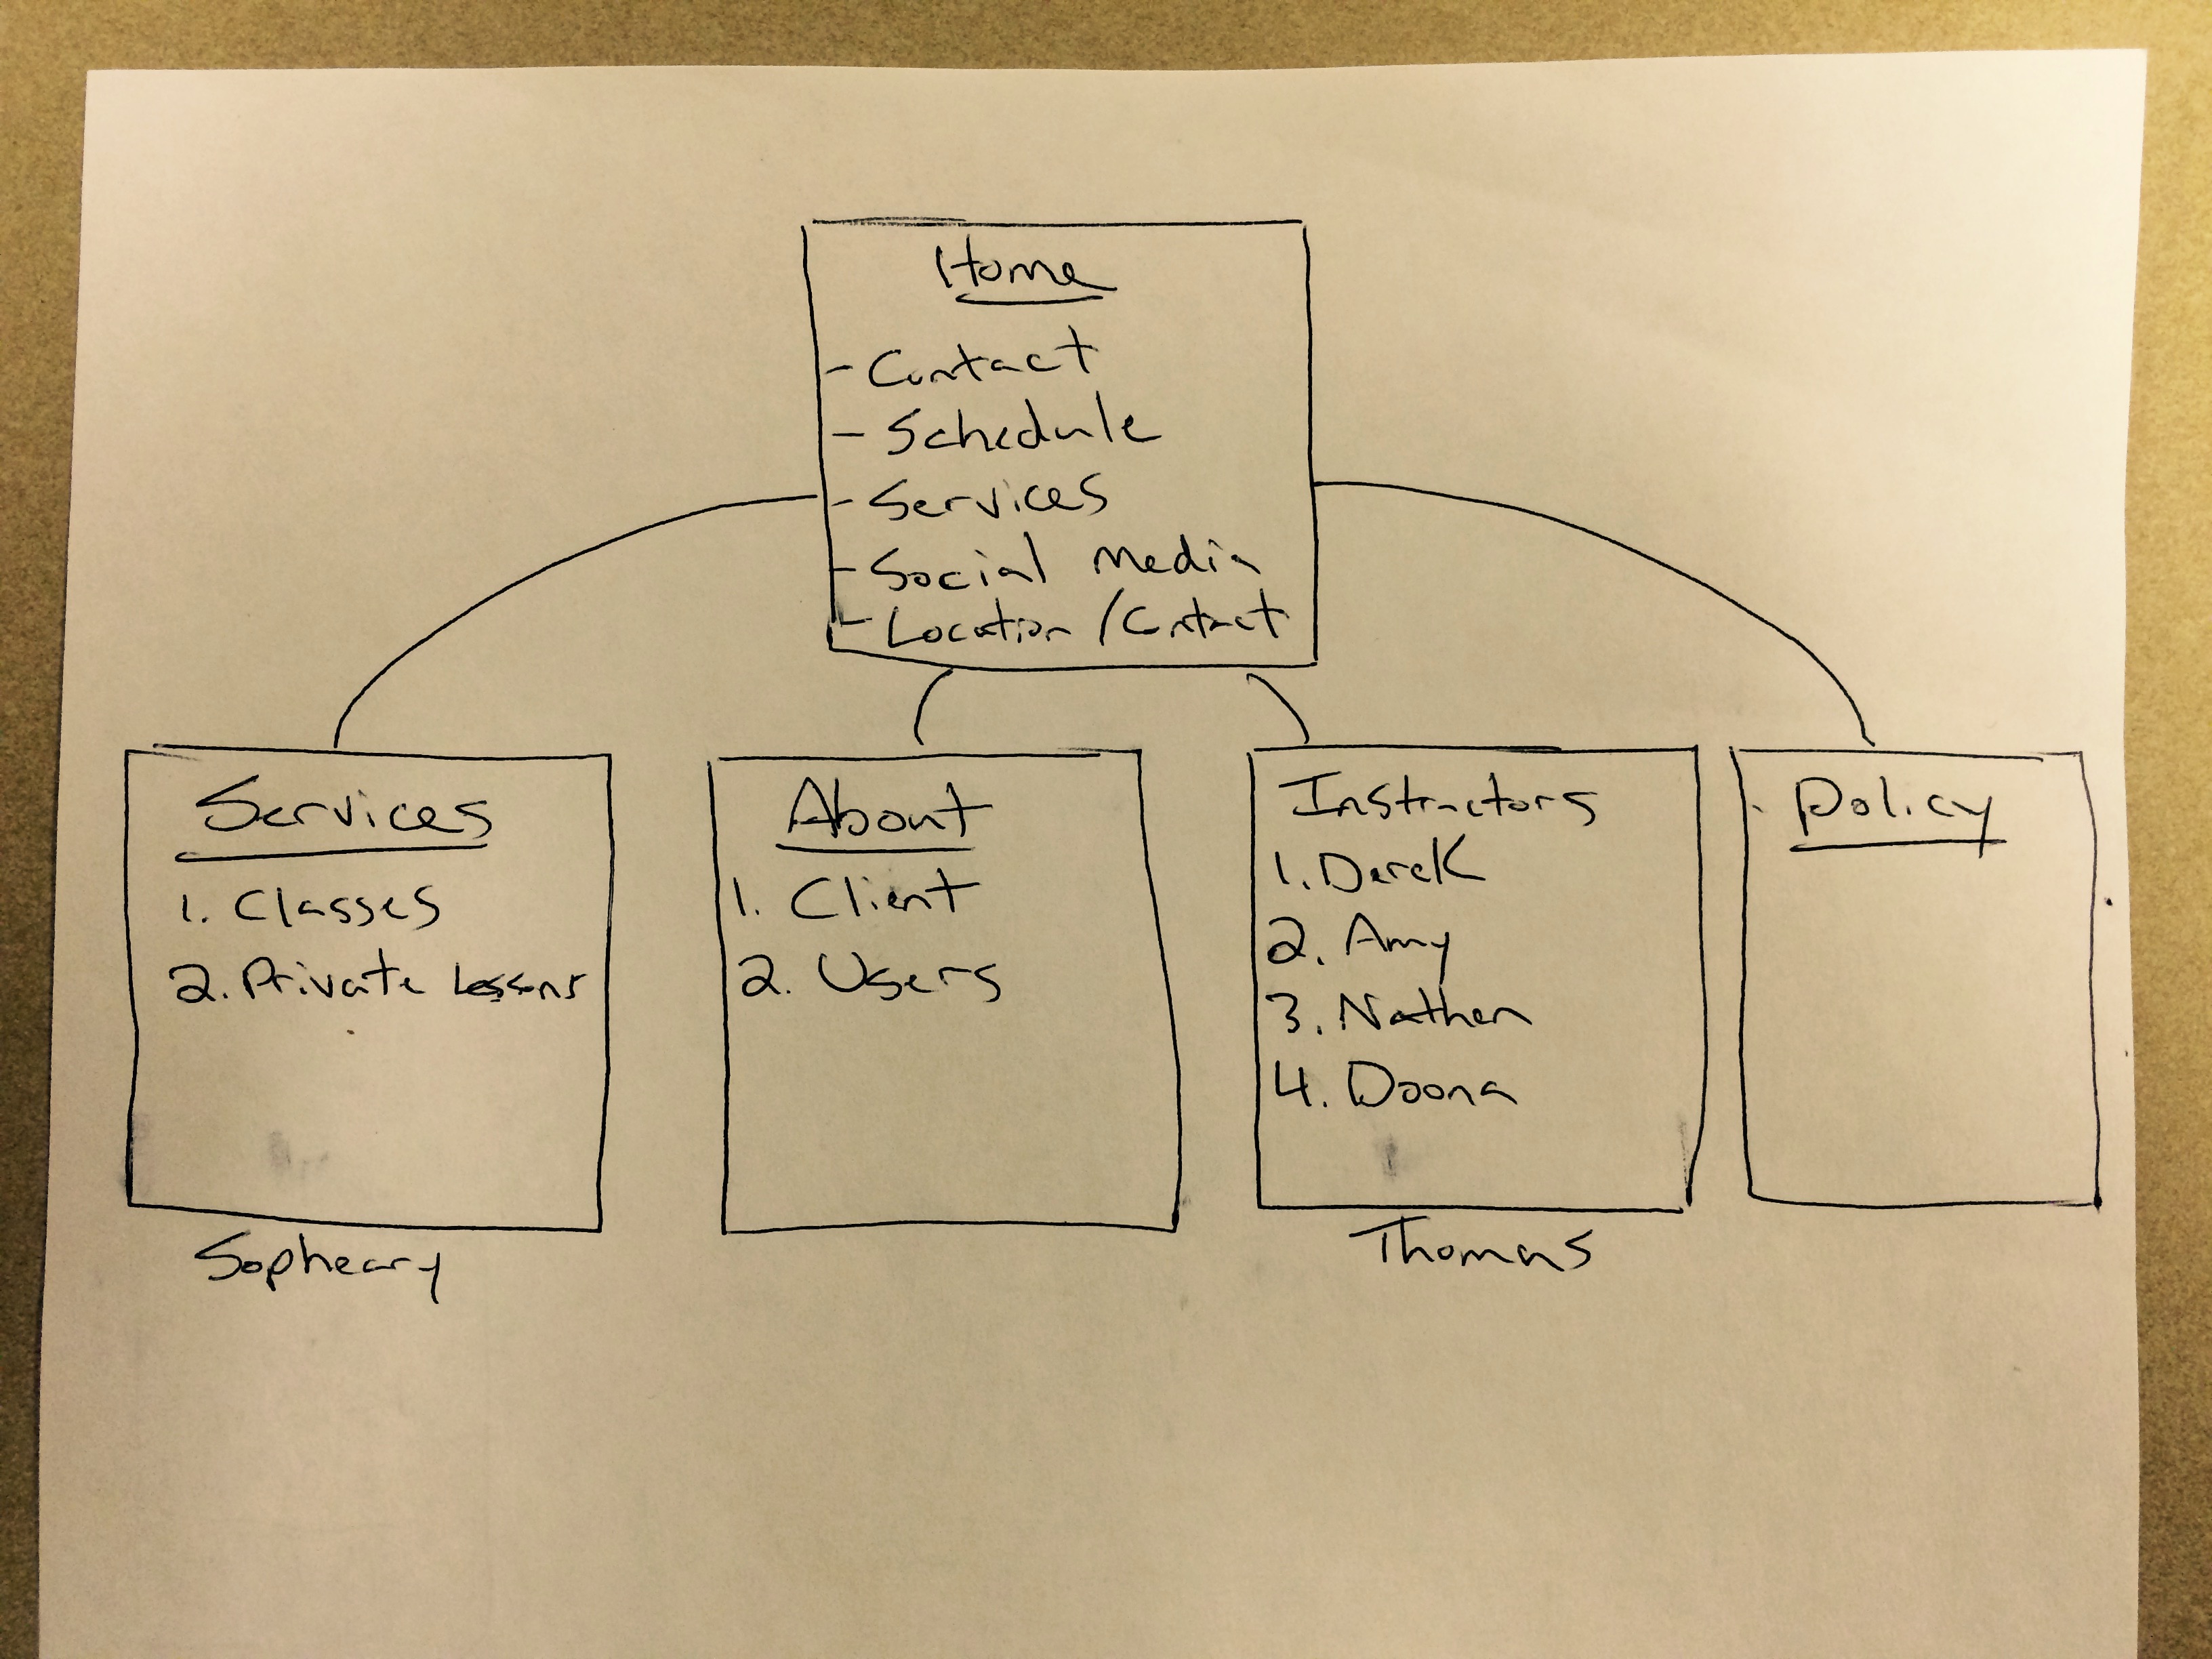 Home
- Contact
- Schedule
- Services
- Social Media
- Location / Contact
Services
1. Classes
2. Private Lessons
Sopheary
About
1. Client
2. Users
Instructors
1. Derek
2. Amy
3. Nathen
4. Doona
Thomas
Policy